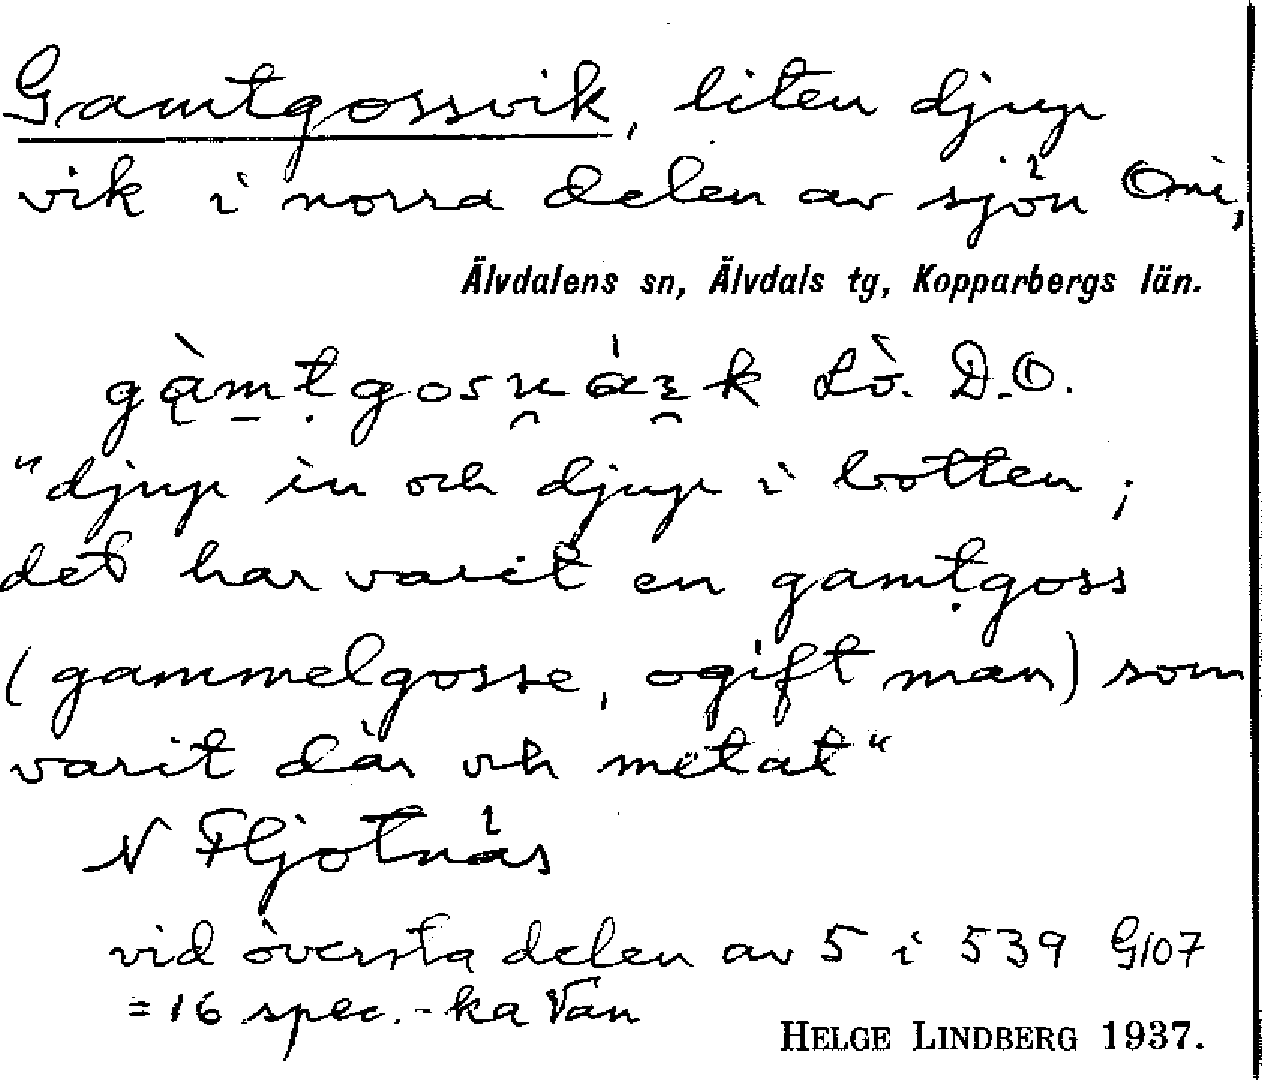 Gamtgossvik, liten djup
vik i norra delen av sjön Omi,
Älvdalens sn, Älvdals tg, Kopparbergs län.
Lò. D.O.
"djup in och djup i botten;
det har varit en gamṭgoss
(gammelgosse, ogift man) som
varit där och metat"
N Fljotnäs
vid översta delen av 5 i 539 G107
=16 spec.-ka Vän
HELGE LINDBERG 1937.